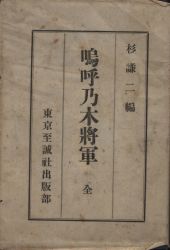 杉謙二編
嗚呼乃木將軍 全
東京至誠社出版部